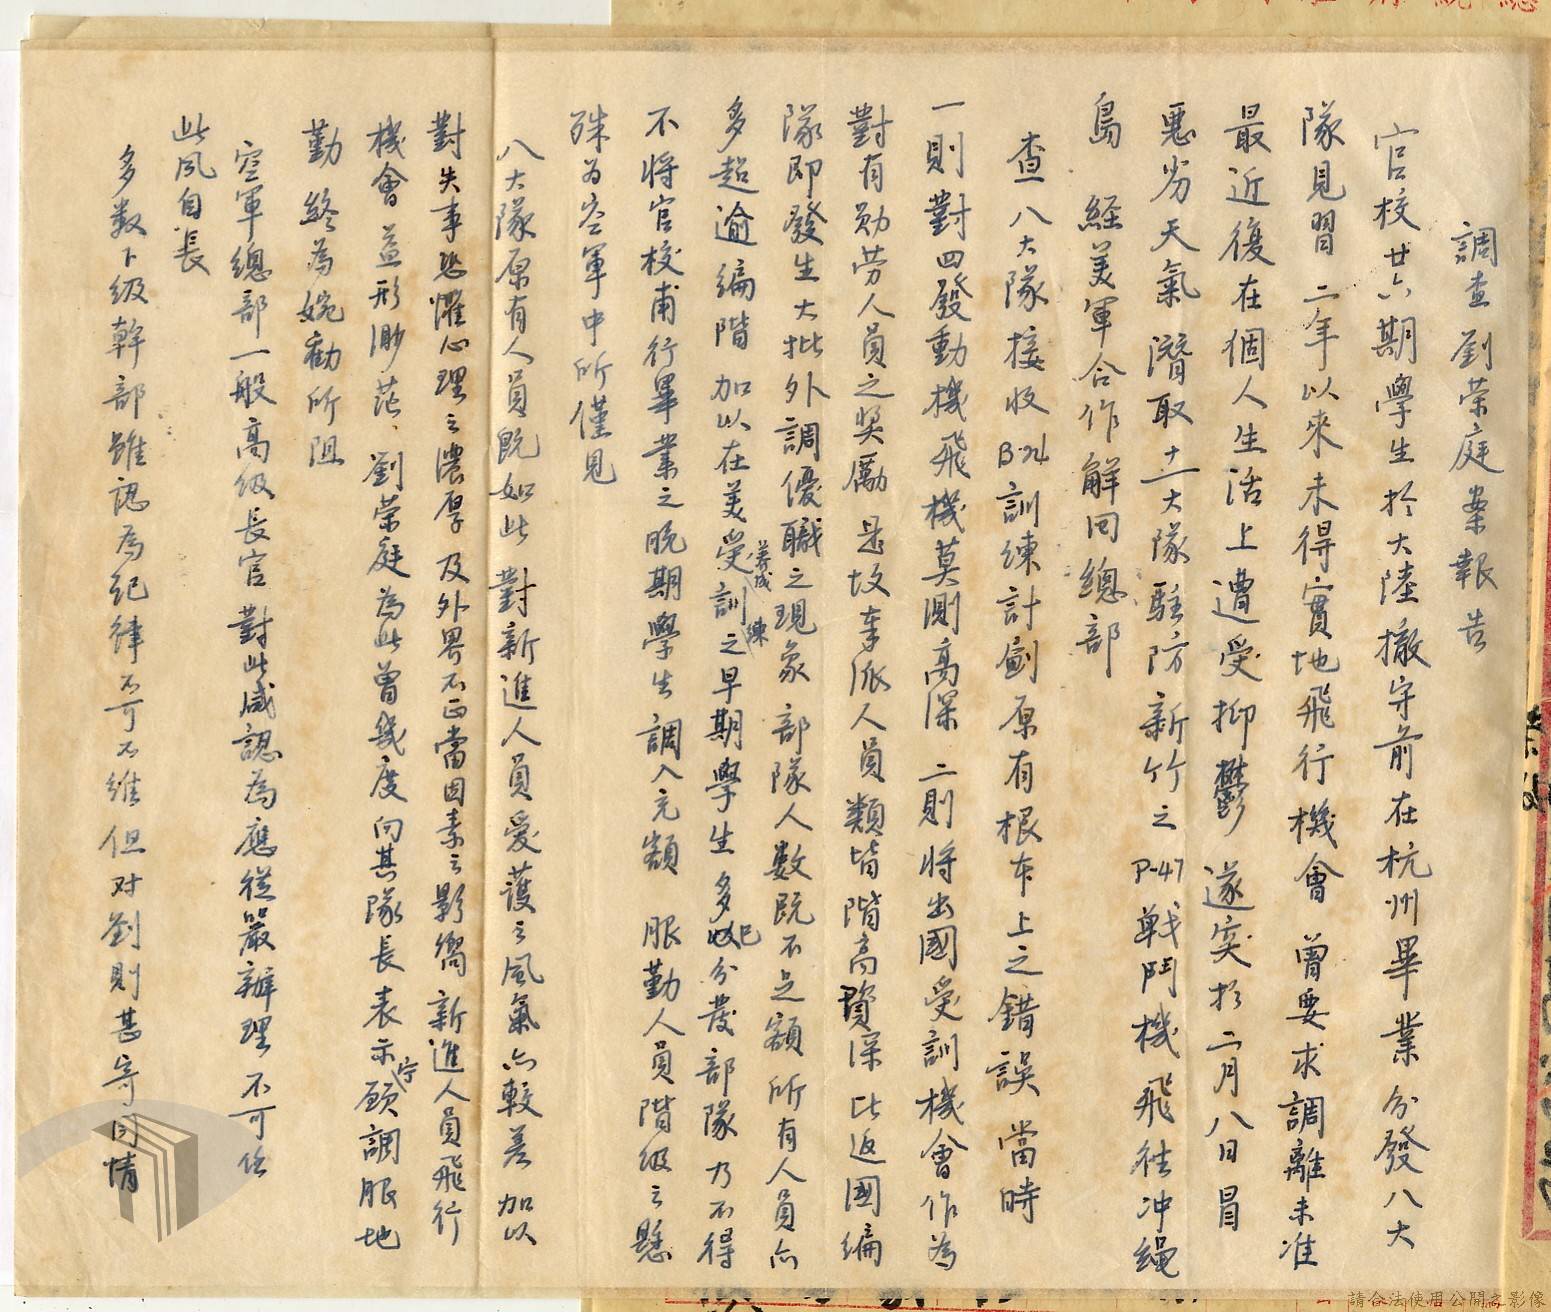 調查劉荣庭案報告
官校廿六期學生於大陸撤守前在杭州畢業分發八大
隊見習 二年以來未得實地飛行機會 曾要求調離未准
最近復在個人生活上遭受抑鬱 遂突於二月八日冒
惡劣天氣 潛取十一大隊駐防新竹之P-47戰鬥機飛往冲繩
島 經美軍合作解回總部
查八大隊接收B-24訓練計劃原有根本上之錯誤 當時
一則對四發動機飛機莫測高深 二則將出國受訓機會作為
對有勛勞人員之奖勵 是故奉派人員類皆階高資深 比返國編
隊即發生大批外調優職之現象 部隊人數既不足額 所有人員亦
多超逾編階 加以在美受養成訓練之早期學生多已分發部隊 乃不得
不將官校甫行畢業之晚期學生調入充額 服勤人員階級之懸
殊为空軍中所僅見
八大隊原有人員既如此 對新進人員愛護之風氣亦較差 加以
對失事恐懼心理之濃厚 及外界不正當因素之影嚮 新進人員飛行
機會益形渺茫、劉荣庭為此曾幾度向其隊長表示宁願調服地
勤 終為婉勸所阻
空軍總部一般高級長官對此咸認為應從嚴辦理 不可任
此风自長
多数下级幹部雖認為紀律不可不維 但对劉則甚寄同情
請合法使用公開之影像